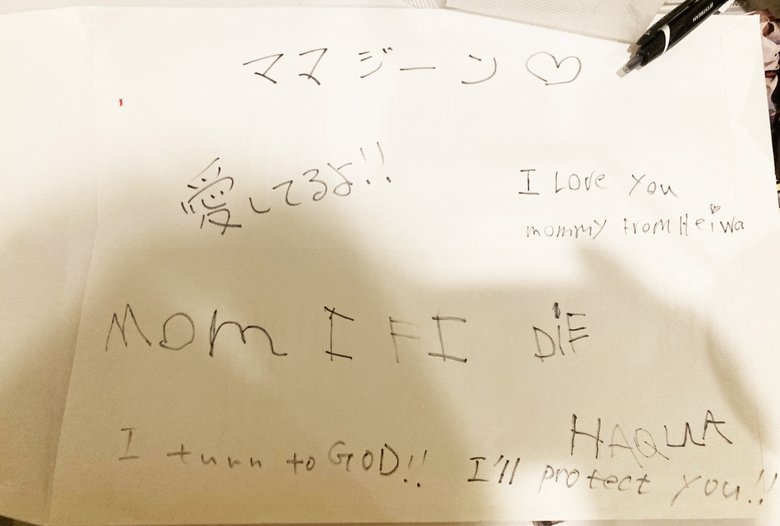 ママ ジーン ♡
愛してるよ!!
I Love you
mommy from Heiwa
MOM I FI DIE
HAQUA
I turn to GOD!! I'll protect you!!